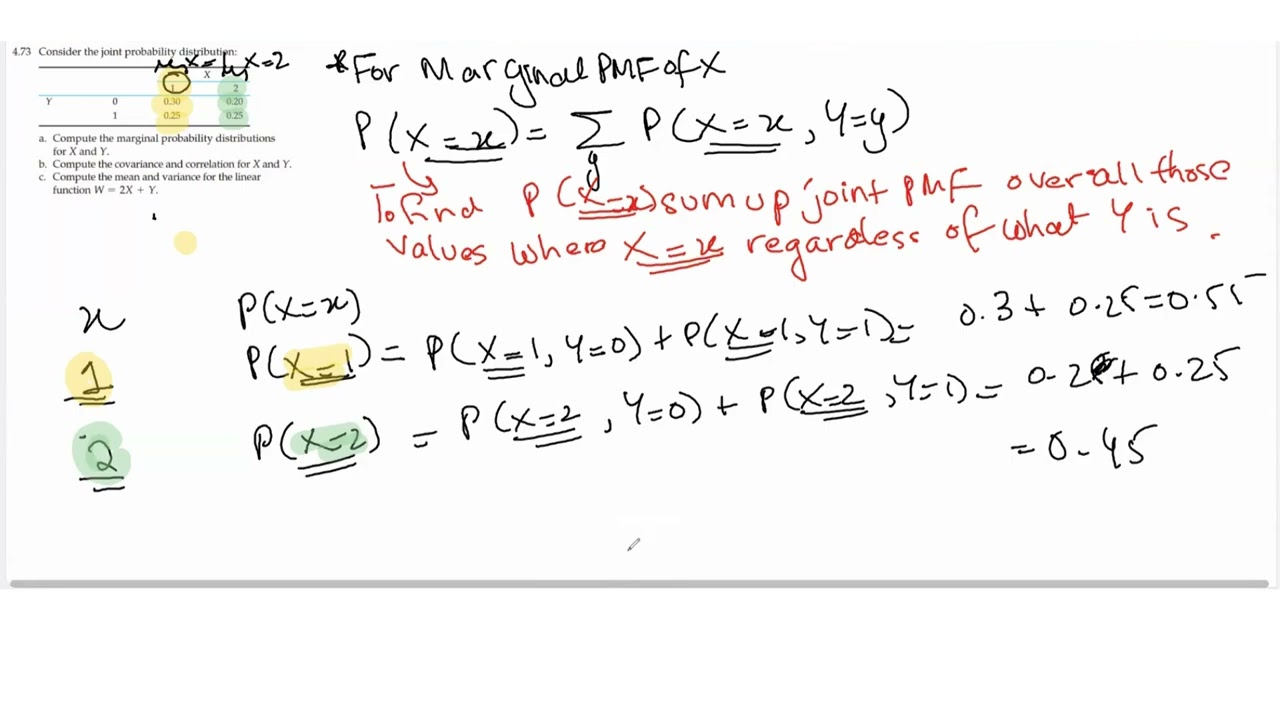 4.73 Consider the joint probability distribution:
x=1 x=2
X
1 2
Y 0 0.30 0.20
1 0.25 0.25
a. Compute the marginal probability distributions
for X and Y.
b. Compute the covariance and correlation for X and Y.
c. Compute the mean and variance for the linear
function W = 2X + Y.
*For Marginal PMF of X
P(X=x) = Σ P(X=x, Y=y)
y
To find P(X=x) sum up joint PMF over all those
values where X=x regardless of what Y is.
x P(X=x)
1 P(X=1) = P(X=1, Y=0) + P(X=1, Y=1) = 0.3 + 0.25 = 0.55
2 P(X=2) = P(X=2, Y=0) + P(X=2, Y=1) = 0.2 + 0.25
= 0.45